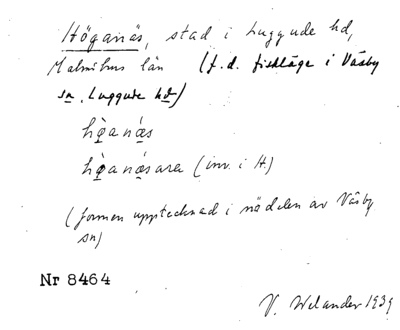 Höganäs, stad i Luggude hd,
Malmöhus län (f.d. fiskläge i Väsby
sn, Luggude hd)
hö̀ganä́s
hö̀ganä́sara (inv. i H.)
(formen upptecknad i nödelen av Väsby
sn)
Nr 8464
V. Welander 1939